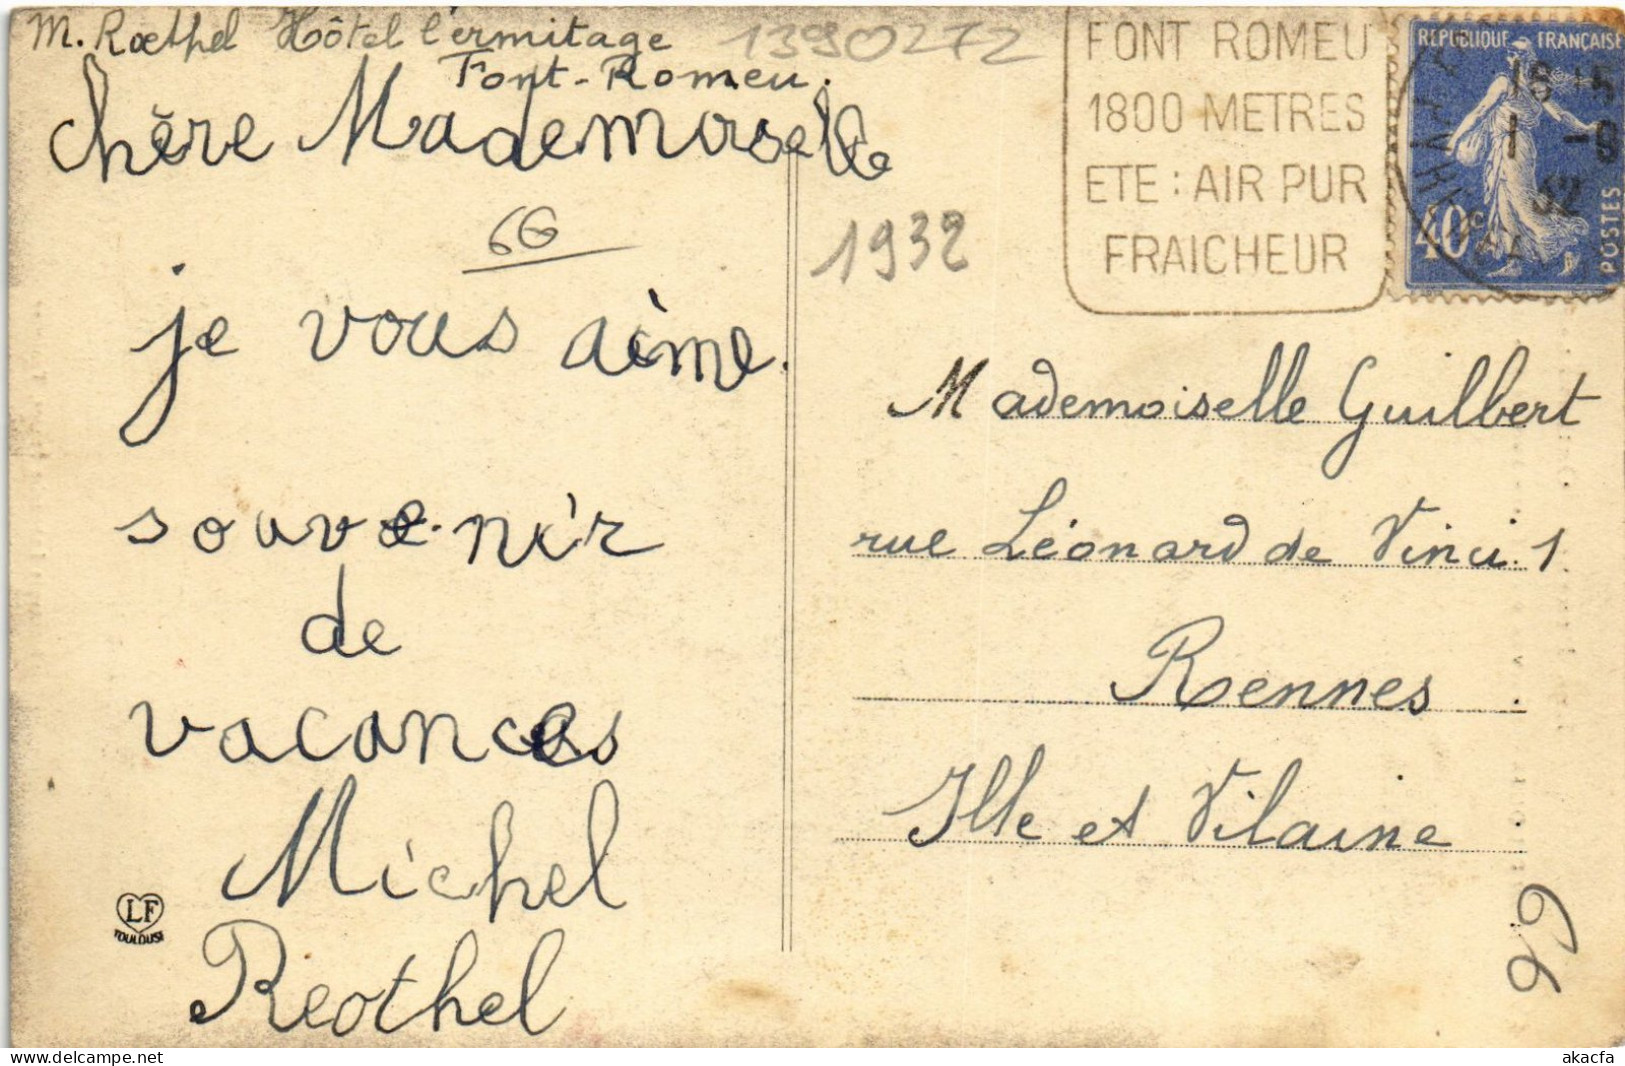 M. Roethel Hôtel l'ermitage
Font-Romeu.
13990272
chère Mademoiselle
66
je vous aime.
souvenir
de
vacances
Michel
Reothel
LF
TOULOUSE
1932
FONT ROMEU
1800 METRES
ETE : AIR PUR
FRAICHEUR
REPUBLIQUE FRANÇAISE
40c
POSTES
16 15
1 -9
32
Mademoiselle Guilbert
rue Léonard de Vinci. 1
Rennes
Ille et Vilaine
66
delcampe.net
akacfa